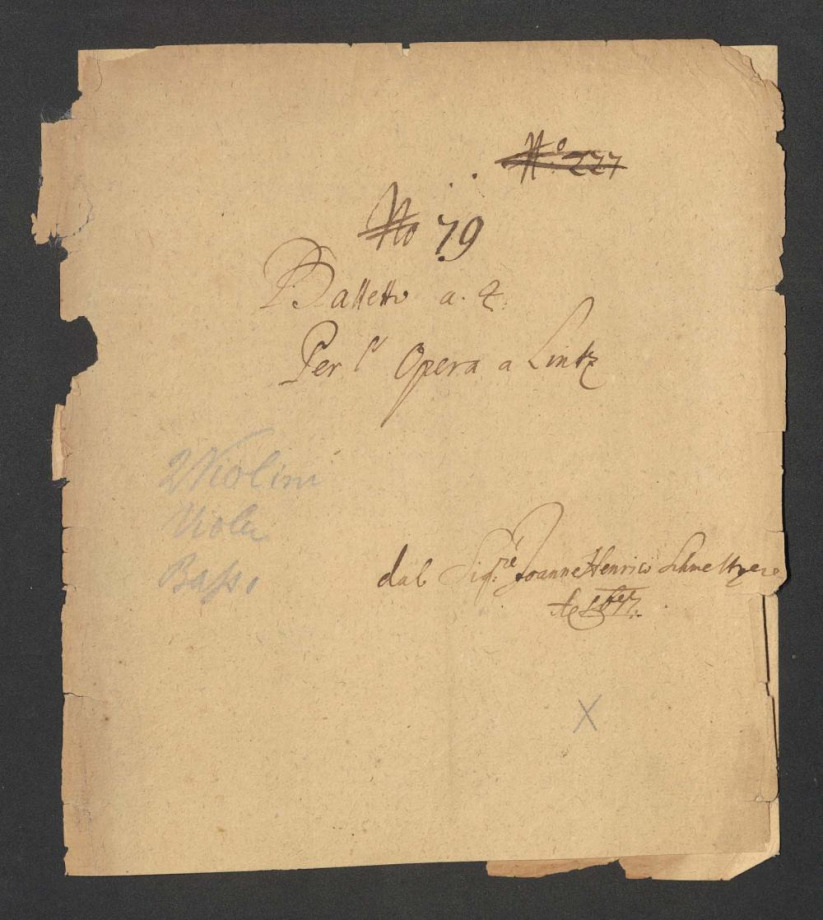 No. 227
No 79
Balletto a. 4.
Per l' Opera a Lintz
2 Violini
Viola
Basso
dal Sig:re Joanne Henrico Schmeltzero